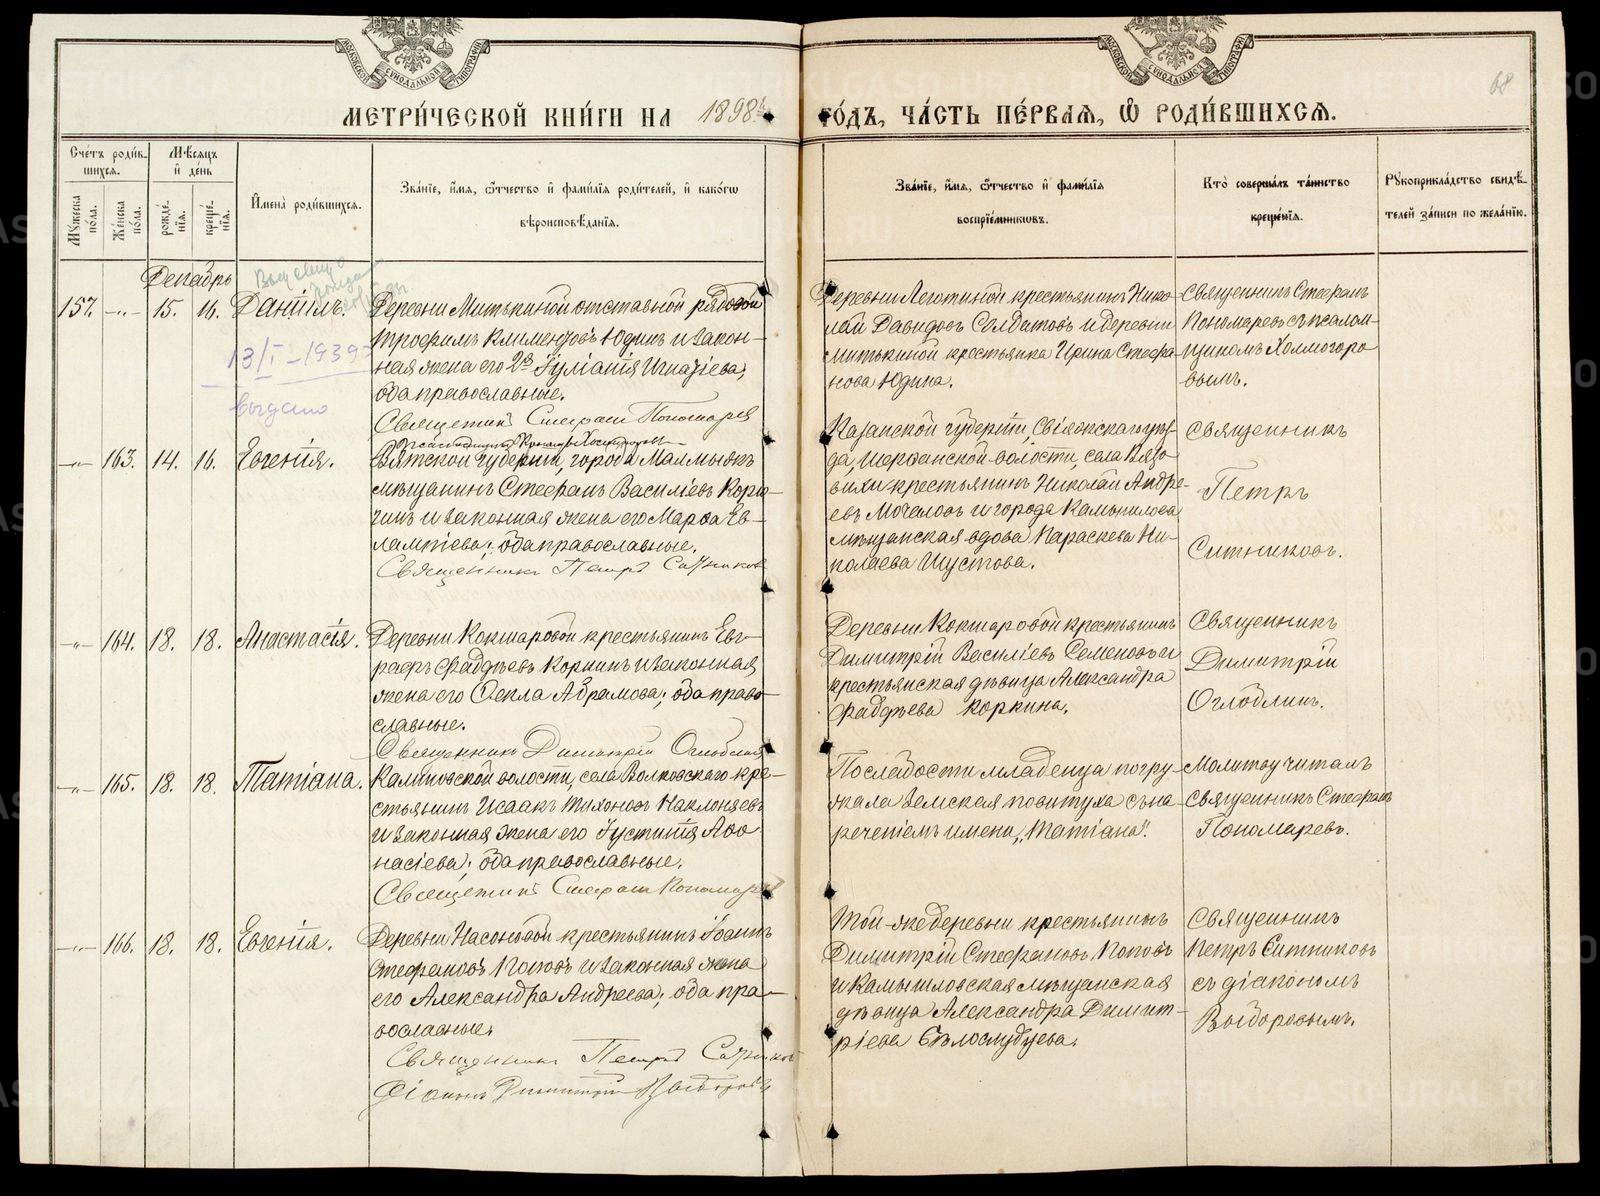 МОСКОВСКОЙ СѴНОДАЛЬНОЙ ТИПОГРАФІИ
МОСКОВСКОЙ СѴНОДАЛЬНОЙ ТИПОГРАФІИ
68
МЕТРИ́ЧЕСКОЙ КНИ́ГИ НА 1898й ГО́ДЪ, ЧА́СТЬ ПЕ́РВАѦ, Ѡ РОДИ́ВШИХСѦ.
Сче́тъ роди́в-
шихсѧ.
Мѹжеска по́ла.
Же́нска по́ла.
Мѣ́сѧцъ и де́нь
рожде́-нїѧ.
креще́-нїѧ.
Имена̀ роди́вшихсѧ.
Зва́нїе, и́мѧ, ѻ́тчество и фами́лїѧ роди́телей, и како́гѡ
вѣроисповѣ́данїѧ.
Зва́нїе, и́мѧ, ѻ́тчество и фами́лїѧ
воспрїе́мникѡвъ.
Кто̀ соверша́лъ та́инство
креще́нїѧ.
Рѹкоприкла́дство свидѣ́-
телей за́писи по жела́нїю.
Декабрь
157. -"- 15. 16. Даніилъ.
13/I-1939
выдано
Деревни Митькиной отставной рядовой
Трофимъ Климентовъ Юдинъ и закон-
ная жена его 2й Іуліанія Игнатіева;
оба православные.
Священникъ Стефанъ Пономаревъ
Деревни Леготиной крестьянинъ Нико-
лай Давидовъ Солдатовъ и деревни
Митькиной крестьянка Ирина Стефа-
нова Юдина.
Священникъ Стефанъ
Пономаревъ съ псалом-
щикомъ Холмогоро
вымъ.
-"- 163. 14. 16. Евгенія.
Вятской губерніи, города Малмыжъ
мѣщанинъ Стефанъ Василіевъ Коря-
гинъ и законная жена его Марѳа Ев-
лампіева; оба православные.
Священникъ Петръ Ситниковъ
Казанской губерніи, Свіяжскаго уѣз-
да, Ширданской волости, села Вязо-
выхъ крестьянинъ Николай Андре-
евъ Мочаловъ и города Камышлова
мѣщанская вдова Параскева Ни-
колаева Шустова.
Священникъ
Петръ
Ситниковъ.
-"- 164. 18. 18. Анастасія.
Деревни Кокшаровой крестьянинъ Евг-
рафъ Фаддѣевъ Коркинъ и законная
жена его Ѳекла Абрамова; оба право-
славные.
Священникъ Димитрій Оглоблинъ
Деревни Кокшаровой крестьянинъ
Димитрій Василіевъ Семеновъ и
крестьянская дѣвица Александра
Фаддѣева Коркина.
Священникъ
Димитрій
Оглоблинъ.
-"- 165. 18. 18. Татіана.
Калиновской волости, села Волковскаго кре-
стьянинъ Исаакъ Тихоновъ Наклоняевъ
и законная жена его Іустинія Аѳо
насіева; оба православные.
Священникъ Стефанъ Пономаревъ
По слабости младенца погру-
жала земская повитуха съ на
реченіемъ имени „Татіана".
Молитву читалъ
священникъ Стефанъ
Пономаревъ.
-"- 166. 18. 18. Евгенія.
Деревни Насоновой крестьянинъ Іоаннъ
Стефановъ Поповъ и законная жена
его Александра Андреева; оба пра-
вославные.
Священникъ Петръ Ситниковъ
Діаконъ Димитрій Выборовъ
Той-же деревни крестьянинъ
Димитрій Стефановъ Поповъ
и Камышловская мѣщанская
дѣвица Александра Димит-
ріева Бѣлослудцева.
Священникъ
Петръ Ситниковъ
съ діакономъ
Выборовымъ.
METRIKI.GASO-URAL.RU